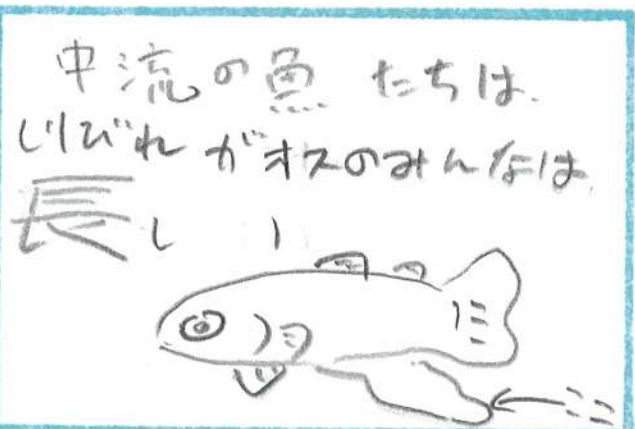 中流の魚たちは.
しりびれがオスのみんなは.
長い
ここ